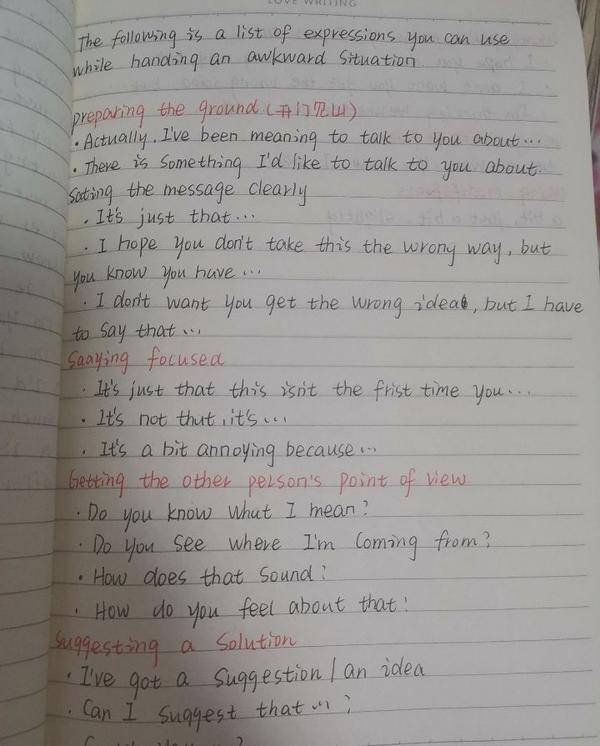 LOVE WRITING
The following is a list of expressions you can use
while handing an awkward situation
preparing the ground (开门见山)
· Actually, I've been meaning to talk to you about...
· There is something I'd like to talk to you about.
Sating the message clearly
· It's just that...
· I hope you don't take this the wrong way, but
you know you have ...
· I don't want you get the wrong idea, but I have
to say that ...
Saaying focused
· It's just that this isn't the frist time you...
· It's not that, it's ...
· It's a bit annoying because...
Getting the other person's point of view
· Do you know what I mean?
· Do you see where I'm coming from?
· How does that sound?
· How do you feel about that?
Suggesting a solution
· I've got a suggestion / an idea
· Can I suggest that ...?